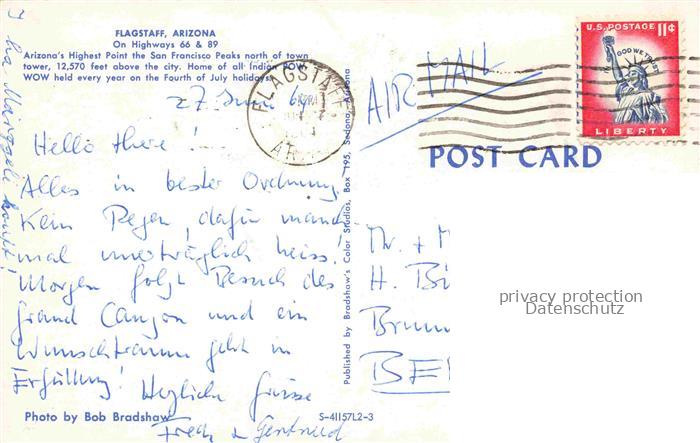 FLAGSTAFF, ARIZONA
On Highways 66 & 89
Arizona's Highest Point the San Francisco Peaks north of town
tower, 12,570 feet above the city. Home of all Indian POW
WOW held every year on the Fourth of July holidays.
27. June 6
Hello there!
Alles in bester Ordnung.
Kein Regen, dafür manch
mal unerträglich heiss!
Morgen folgt Besuch des
Grand Canyon und ein
Wunschtraum geht in
Erfüllung! Herzliche Grüsse
Fredy &
Photo by Bob Bradshaw
S-41157L2-3
Published by Bradshaw's Color Studios, Box 195, Sedona, Arizona
FLAGSTAFF
AIR MAIL
U.S. POSTAGE 11¢
IN GOD WE TRUST
LIBERTY
POST CARD
Mr. + M
H. Bi
BE
privacy protection
Datenschutz